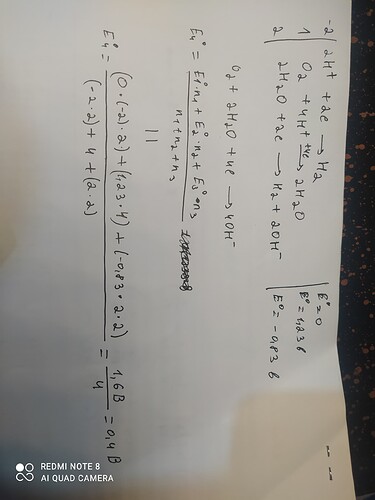 -2 | 2H⁺ + 2e → H₂ | E°=0
1 | O₂ + 4H⁺ +4e → 2H₂O | E°=1,23 в
2 | 2H₂O + 2e → H₂ + 2OH⁻ | E°= -0,83 в
O₂ + 2H₂O + 4e → 4OH⁻
E₄° = (E₁°·n₁ + E₂°·n₂ + E₃°·n₃) / (n₁+n₂+n₃)
||
E₄° = ((0·(-2)·2) + (1,23·4) + (-0,83·2·2)) / ((-2·2) + 4 + (2·2)) = 1,6 В / 4 = 0,4 В
REDMI NOTE 8
AI QUAD CAMERA